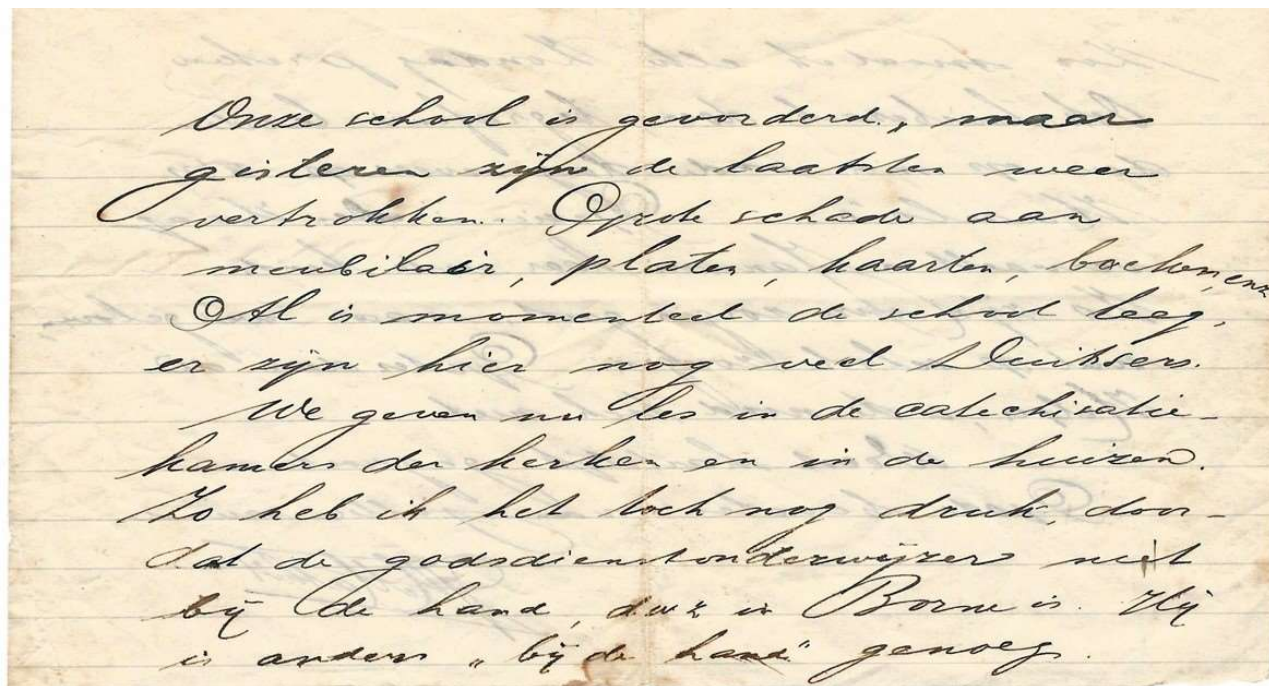 Onze school is gevorderd, maar
gisteren zijn de laatsten weer
vertrokken. Grote schade aan
meubilair, platen, kaarten, boeken, enz
Al is momenteel de school leeg,
er zijn hier nog veel Duitsers.
We geven nu les in de catechisatie-
kamers der kerken en in de huizen.
Zo heb ik het toch nog druk, door-
dat de godsdienstonderwijzer niet
bij de hand, d.w.z. in Borne is. Hij
is anders „bij de hand" genoeg.